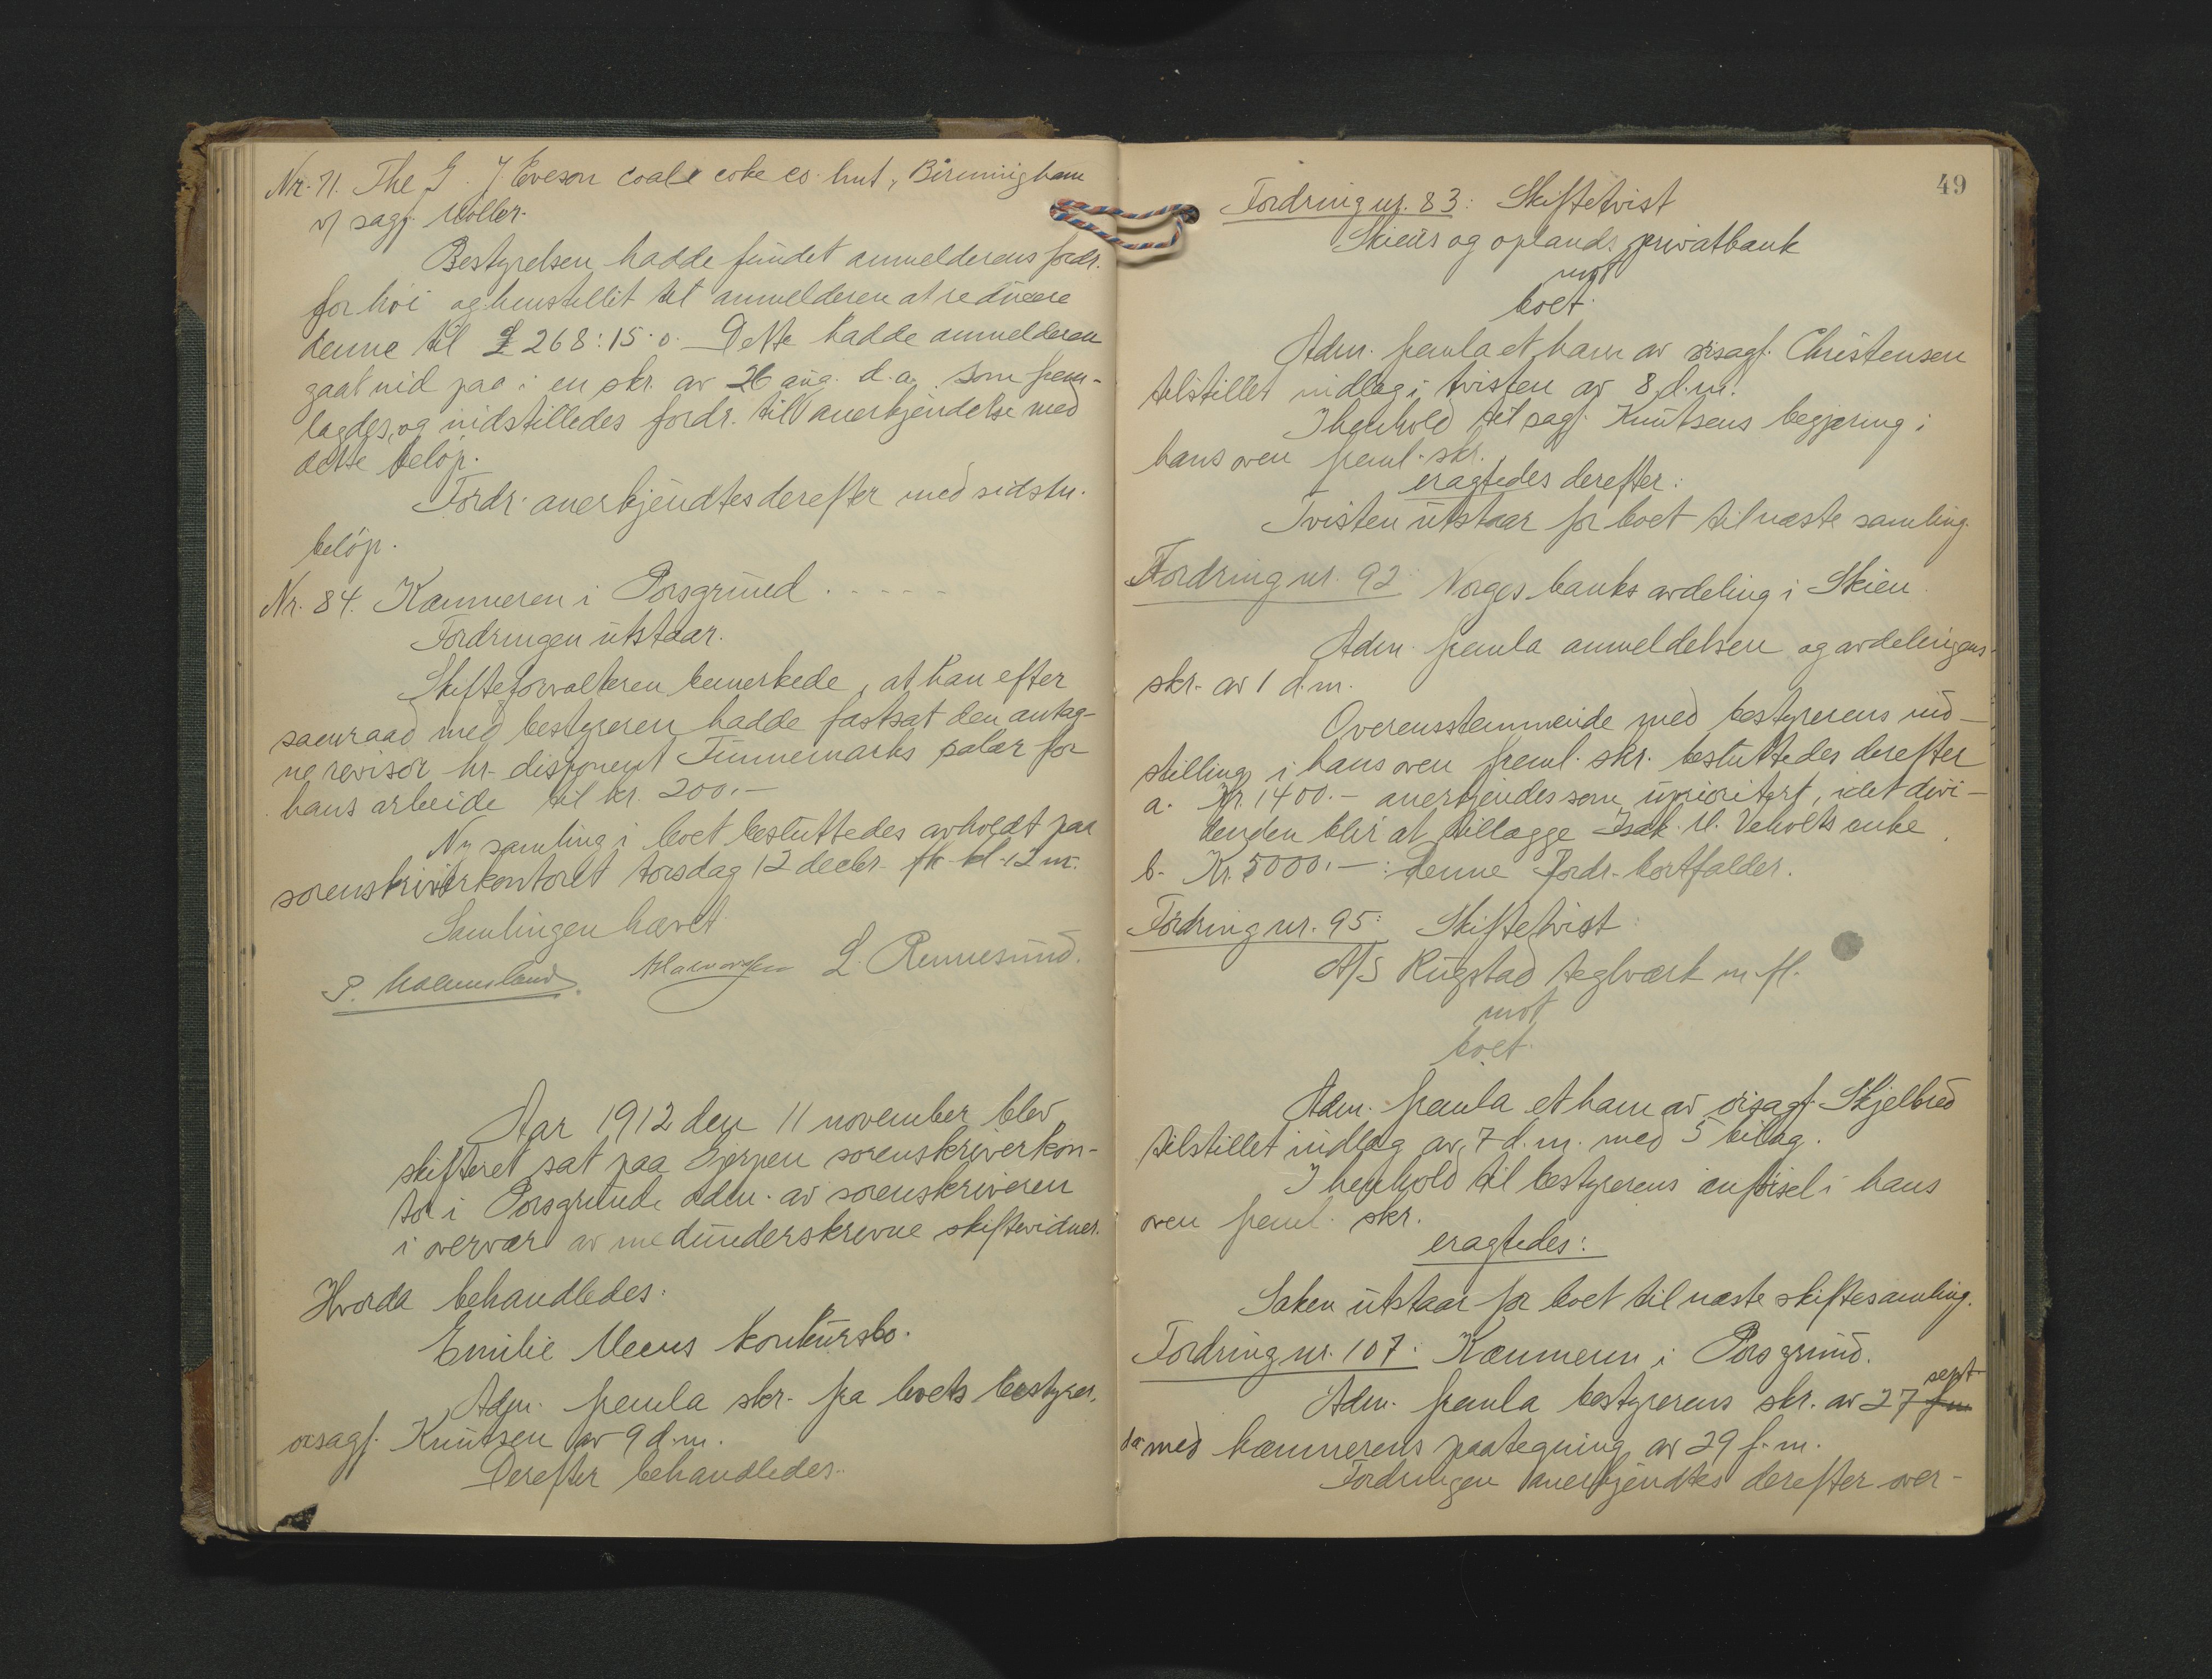 Nr. 71. The G. J. Eveson coal & coke co. lmt, Birmingham
v/ sagf. Møller.
Bestyrelsen hadde fundet anmelderens fordr.
for høi og henstillet til anmelderen at reducere
denne til £ 268:15:0. Dette hadde anmelderen
gaat ind paa i en skr. av 26 aug. d.a. som frem-
lagdes, og indstilledes fordr. til anerkjendelse med
dette beløp.
Fordr. anerkjendtes derefter med sidstn.
beløp.
Nr. 84. Kæmneren i Porsgrund . . . . .
Fordringen utstaar.
Skifteforvalteren bemerkede, at han efter
samraad med bestyreren hadde fastsat den antag-
ne revisor hr. disponent Finnemarks salær for
hans arbeide til kr. 200.-
Ny samling i boet besluttedes avholdt paa
sorenskriverkontoret torsdag 12 decbr. fk. kl. 12 m.
Samlingen hævet.
P. Holmesland. Halvorsen L. Rennesund.
Aar 1912 den 11 november blev
skifteret sat paa Gjerpen sorenskriverkon-
tor i Porsgrund adm. av sorenskriveren
i overvær av medunderskrevne skiftevidner.
Hvorda behandledes:
Emilie Meens konkursbo.
Adm. fremla skr. fra boets bestyrer,
orsagf. Knutsen av 9 d.m.
Derefter behandledes:
49
Fordring nr. 83: Skiftetvist
Skiens og oplands privatbank
mot
boet.
Adm. fremla et ham av orsagf. Christensen
tilstillet indlæg i tvisten av 8 d.m.
I henhold til sagf. Knutsens begjæring i
hans oven freml. skr.
eragtedes derefter:
Tvisten utstaar for boet til næste samling.
Fordring nr. 92: Norges banks avdeling i Skien.
Adm. fremla anmeldelsen og avdelingens
skr. av 1 d.m.
Overensstemmende med bestyrerens ind-
stilling i hans oven freml. skr. besluttedes derefter
a. Kr. 1400.- anerkjendes som uprioritert, idet divi-
denden blir at tillægge Isak M. Veholts enke.
b. Kr. 5000.-: denne fordr. bortfalder.
Fordring nr. 95: Skiftetvist:
A/S Rugstad teglverk m.fl.
mot
boet.
Adm. fremla et ham av orsagf. Skjelbred
tilstillet indlæg av 7 d.m. med 5 bilag.
I henhold til bestyrerens anførsel i hans
oven freml. skr.
eragtedes:
Saken utstaar for boet til næste skiftesamling.
Fordring nr. 107: Kæmneren i Porsgrund.
sept.
Adm. fremla bestyrerens skr. av 27 f.m.
d.a. med kæmnerens paategning av 29 f.m.
Fordringen anerkjendtes derefter over-